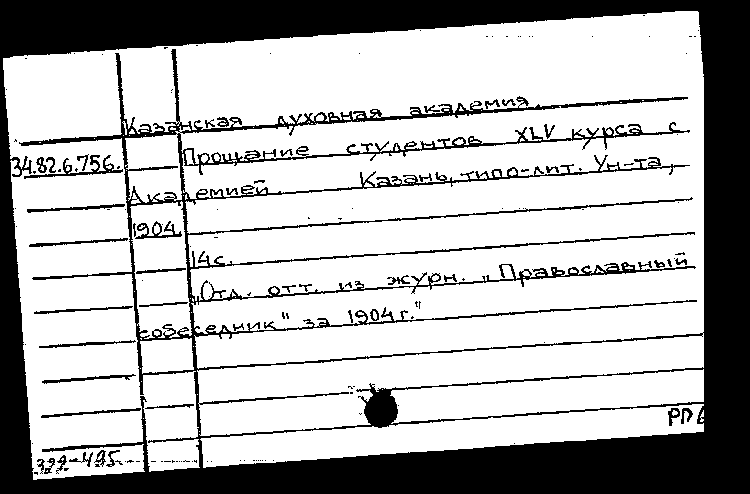 Казанская духовная академия.
34.82.6.756. Прощание студентов XLV курса с
Академией. Казань, типо-лит. Ун-та,
1904
14с.
„Отд. отт. из журн. „Православный
собеседник" за 1904 г."
322-495